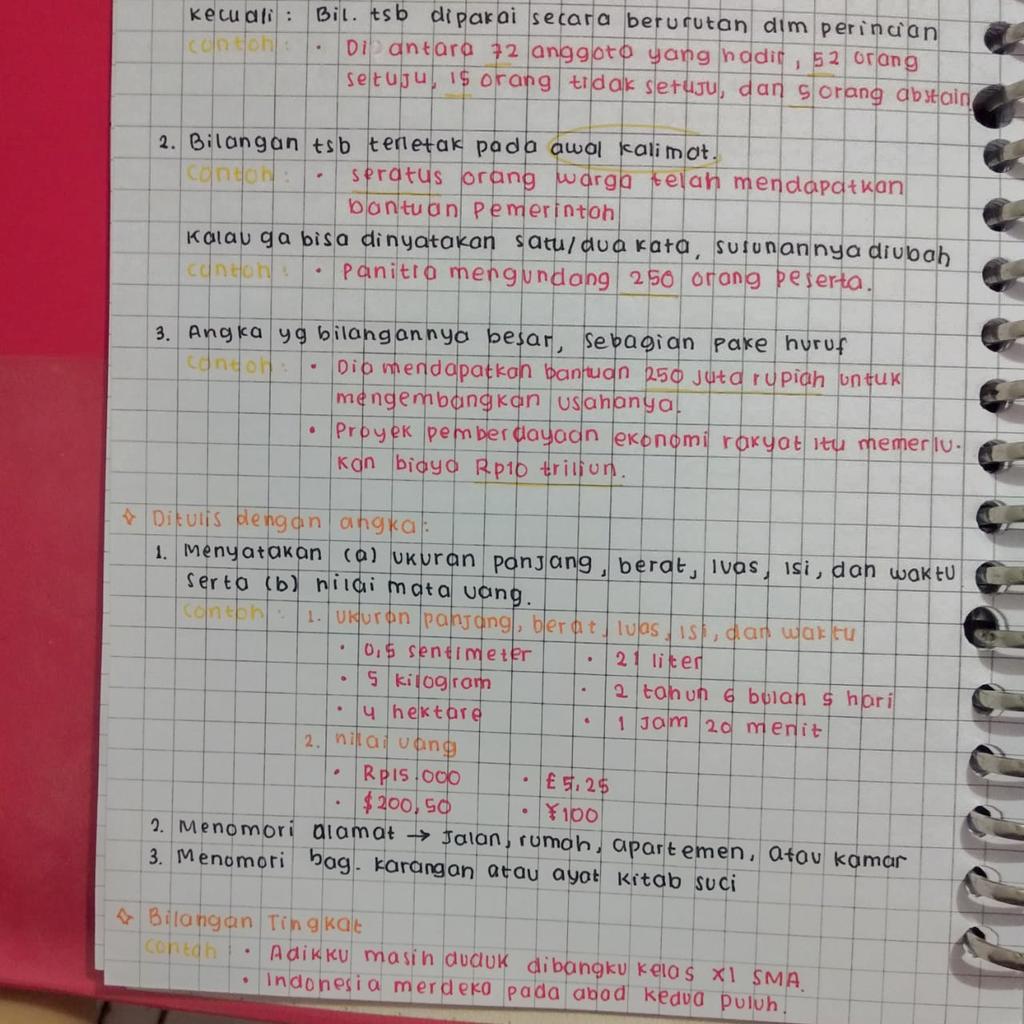 kecuali : Bil. tsb dipakai secara berurutan dlm perincian
contoh : • Di antara 72 anggota yang hadir, 52 orang
setuju, 15 orang tidak setuju, dan 5 orang abstain
2. Bilangan tsb terletak pada awal kalimat.
contoh : • seratus orang warga telah mendapatkan
bantuan pemerintah
Kalau ga bisa dinyatakan satu/dua kata, susunannya diubah
contoh : • Panitia mengundang 250 orang peserta.
3. Angka yg bilangannya besar, sebagian pake huruf
contoh : • Dia mendapatkan bantuan 250 juta rupiah untuk
mengembangkan usahanya.
• Proyek pemberdayaan ekonomi rakyat itu memerlu-
kan biaya Rp10 triliun.
Ditulis dengan angka :
1. Menyatakan (a) ukuran panjang, berat, luas, isi, dan waktu
serta (b) nilai mata uang.
contoh : 1. ukuran panjang, berat, luas, isi, dan waktu
• 0,5 sentimeter • 21 liter
• 5 kilogram • 2 tahun 6 bulan 5 hari
• 4 hektare • 1 jam 20 menit
2. nilai uang
• Rp15.000 • £5,25
• $200,50 • ¥100
2. Menomori alamat → jalan, rumah, apartemen, atau kamar
3. Menomori bag. karangan atau ayat kitab suci
Bilangan Tingkat
contoh : • Adikku masih duduk dibangku kelas XI SMA.
• Indonesia merdeka pada abad kedua puluh.